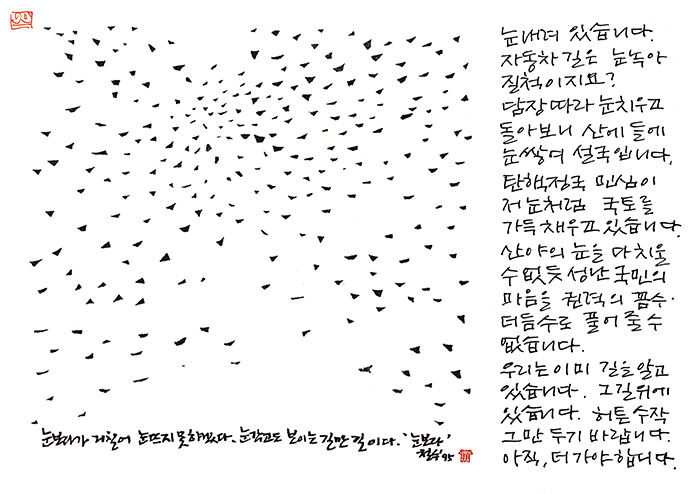 눈보라가 거칠어 눈뜨지 못하겠다. 눈감고도 보이는 길만 길이다. '눈보라'
철수 '95
눈내려 있습니다.
자동차길은 눈녹아
질척이지요?
담장따라 눈치우고
돌아보니 산에 들에
눈쌓여 설국입니다.
탄핵정국 민심이
저 눈처럼 국토를
가득 채우고 있습니다.
산야의 눈을 다 치울
수 없듯 성난 국민의
마음을 권력의 꼼수·
더듬수로 풀어 줄 수
없습니다.
우리는 이미 길을 알고
있습니다. 그 길 위에
있습니다. 허튼 수작
그만 두기 바랍니다.
아직, 더 가야 합니다.